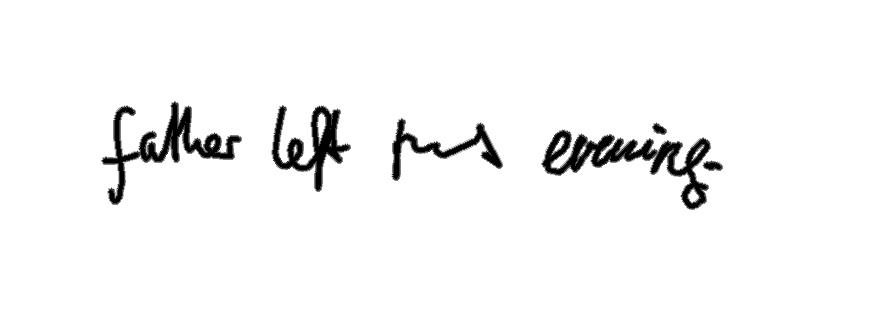 father left this evening.